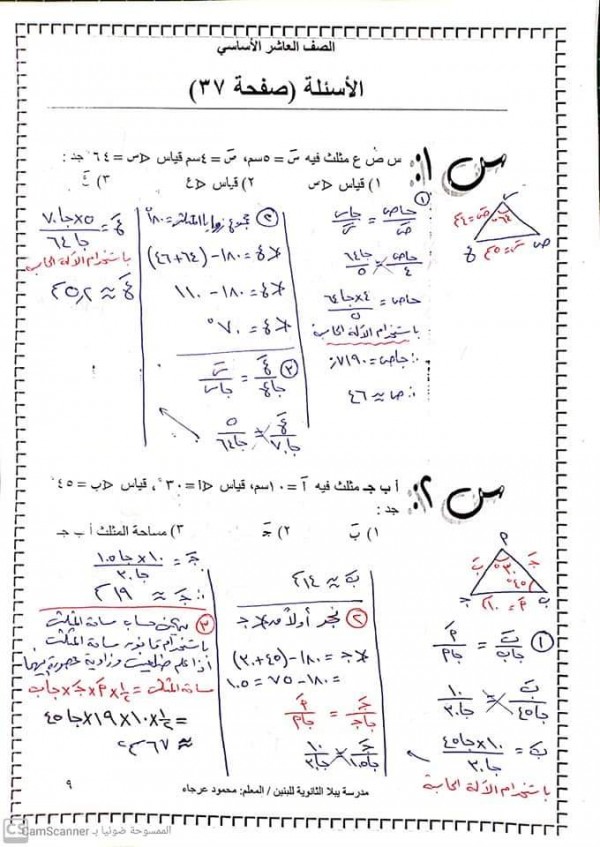 الصف العاشر الأساسي
الأسئلة (صفحة ٣٧)
س ١:
س ص ع مثلث فيه سَ = ٥سم، صَ = ٤سم قياس >س = ٦٤ جد :
١) قياس >ص ٢) قياس >ع ٣) عَ
①
جاص/صَ = جاس/سَ
جاص/٤ = جا٦٤/٥
جاص = ٤×جا٦٤/٥
باستخدام الآلة الحاسبة
∴ جاص = ٠٫٧١٩٠
∴ ص ≈ ٤٦
② مجموع زوايا المثلث = ١٨٠°
>ع = ١٨٠ - (٤٦+٦٤)
>ع = ١٨٠ - ١١٠
>ع = ٧٠°
③ عَ/جاع = سَ/جاس
عَ/جا٧٠ = ٥/جا٦٤
عَ = ٥×جا٧٠/جا٦٤
باستخدام الآلة الحاسبة
عَ ≈ ٥٫٢سم
س ٦٤ سَ = ٥سم صَ = ٤سم ص ع
س ٢:
أ ب جـ مثلث فيه أَ = ١٠سم، قياس >أ = ٣٠°، قياس >ب = ٤٥°
جد :
١) بَ ٢) جَـ ٣) مساحة المثلث أ ب جـ
م جَـ بَ ٣٠° ٤٥° مَ = ١٠سم ب جـ
① بَ/جاب = مَ/جام
بَ/جا٤٥ = ١٠/جا٣٠
بَ = ١٠×جا٤٥/جا٣٠
باستخدام الآلة الحاسبة
بَ ≈ ١٤سم
② نجد أولاً >جـ
>جـ = ١٨٠ - (٤٥+٣٠)
= ١٨٠ - ٧٥ = ١٠٥
جَـ/جاجـ = مَ/جام
جَـ/جا١٠٥ = ١٠/جا٣٠
جَـ = ١٠×جا١٠٥/جا٣٠
∴ جَـ ≈ ١٩سم
③ يمكن حساب مساحة المثلث
باستخدام قانون مساحة المثلث
إذا علم ضلعين وزاوية محصورة بينهما
مساحة المثلث = ½×مَ×جَـ×جاب
= ½×١٠×١٩×جا٤٥
≈ ٦٧سم²
مدرسة يبلا الثانوية للبنين / المعلم: محمود عرجاء
٩
CS CamScanner الممسوحة ضوئيا بـ